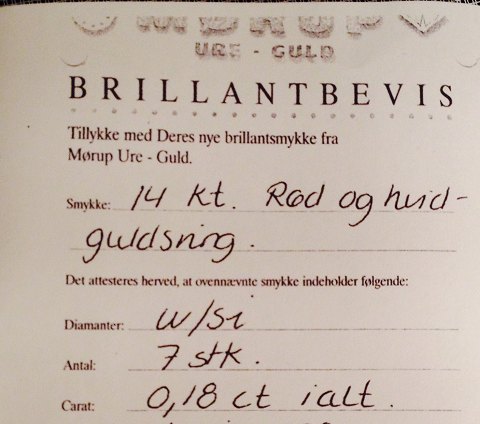 URE - GULD
BRILLANTBEVIS
Tillykke med Deres nye brillantsmykke fra
Mørup Ure - Guld.
Smykke: 14 kt. Rød og hvid-
guldsring.
Det attesteres herved, at ovennævnte smykke indeholder følgende:
Diamanter: w/si
Antal: 7 stk.
Carat: 0,18 ct ialt.